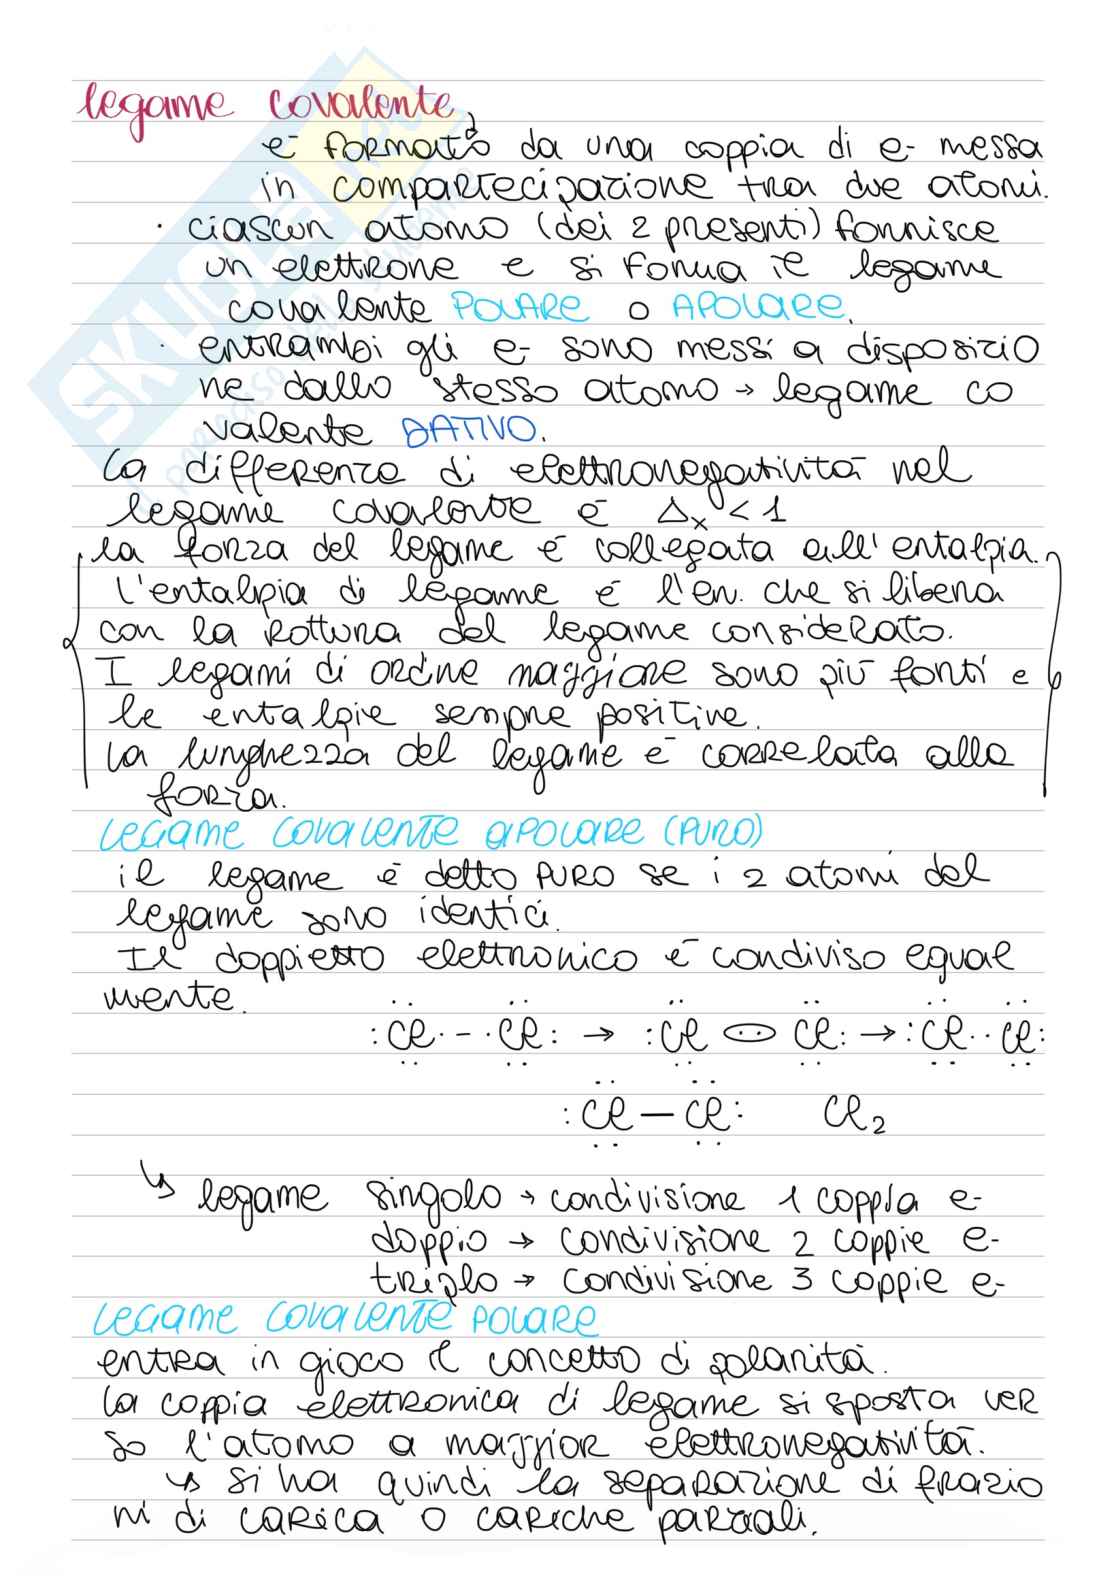 legame covalente
è formato da una coppia di e- messa
in compartecipazione tra due atomi.
· ciascun atomo (dei 2 presenti) fornisce
un elettrone e si forma il legame
covalente POLARE o APOLARE.
· entrambi gli e- sono messi a disposizio
ne dallo stesso atomo → legame co
valente DATIVO.
la differenza di elettronegatività nel
legame covalente è Δx < 1
la forza del legame è collegata all'entalpia.
L'entalpia di legame è l'en. che si libera
con la rottura del legame considerato.
I legami di ordine maggiore sono più forti e
le entalpie sempre positive.
la lunghezza del legame è correlata alla
forza.
LEGAME COVALENTE APOLARE (PURO)
il legame è detto PURO se i 2 atomi del
legame sono identici.
Il doppietto elettronico è condiviso equal
mente.
:Cl· - ·Cl: → :Cl ·· Cl: → :Cl··Cl:
:Cl — Cl: Cl2
↳ legame singolo → condivisione 1 coppia e-
doppio → condivisione 2 coppie e-
triplo → condivisione 3 coppie e-
LEGAME COVALENTE POLARE
entra in gioco il concetto di polarità.
la coppia elettronica di legame si sposta ver
so l'atomo a maggior elettronegatività.
↳ si ha quindi la separazione di frazio
ni di carica o cariche parziali.
SKUOLA.net
il paradiso dello studente